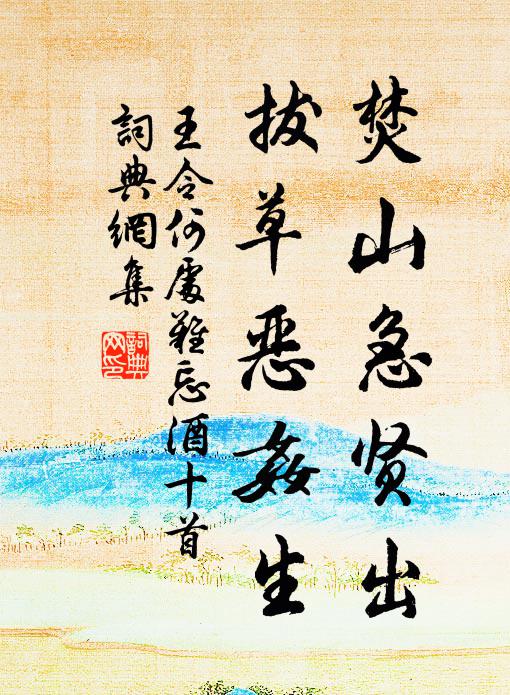 焚山急贤出
拔草恶姦生
王令何處難忘酒十首
詞典網集
詞典
网印